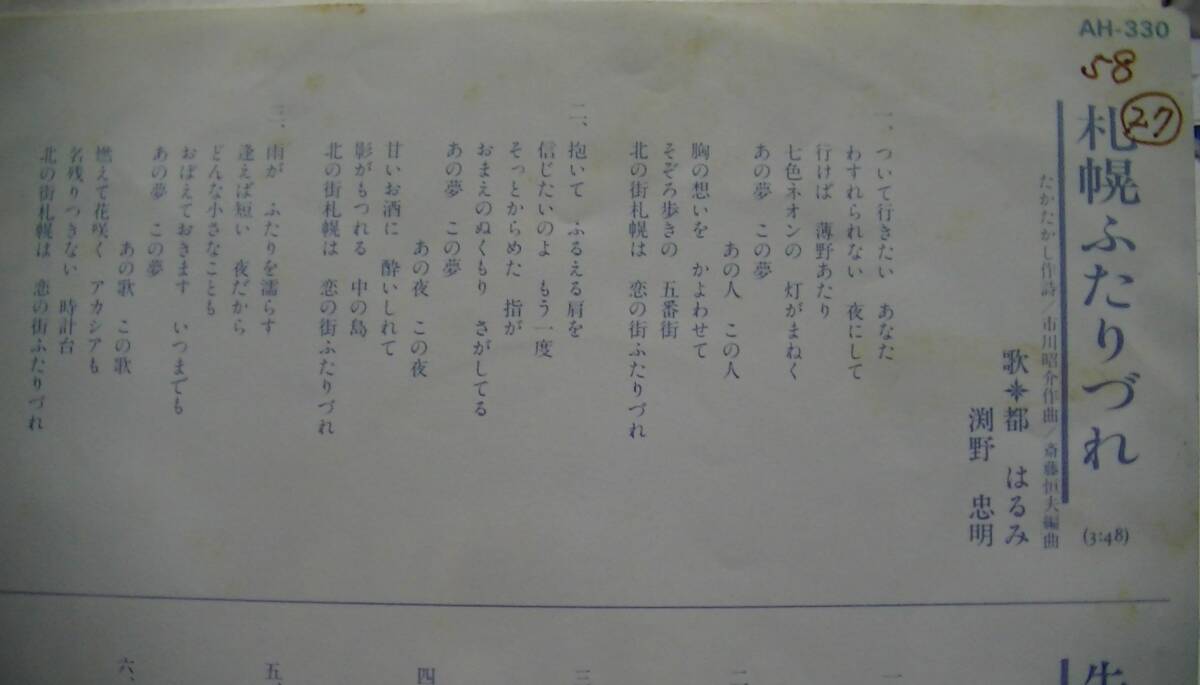 AH-330
58
27
札幌ふたりづれ
(3:48)
たかたかし作詩／市川昭介作曲／斎藤恒夫編曲
歌✳都 はるみ
渕野 忠明
一、ついて行きたい あなた
わすれられない 夜にして
行けば 薄野あたり
七色ネオンの 灯がまねく
あの夢 この夢
あの人 この人
胸の想いを かよわせて
そぞろ歩きの 五番街
北の街札幌は 恋の街ふたりづれ
二、抱いて ふるえる肩を
信じたいのよ もう一度
そっとからめた 指が
おまえのぬくもり さがしてる
あの夢 この夢
あの夜 この夜
甘いお酒に 酔いしれて
影がもつれる 中の島
北の街札幌は 恋の街ふたりづれ
三、雨が ふたりを濡らす
逢えば短い 夜だから
どんな小さなことも
おぼえておきます いつまでも
あの夢 この夢
あの歌 この歌
燃えて花咲く アカシアも
名残りつきない 時計台
北の街札幌は 恋の街ふたりづれ
一
二
三
四
五、
六、